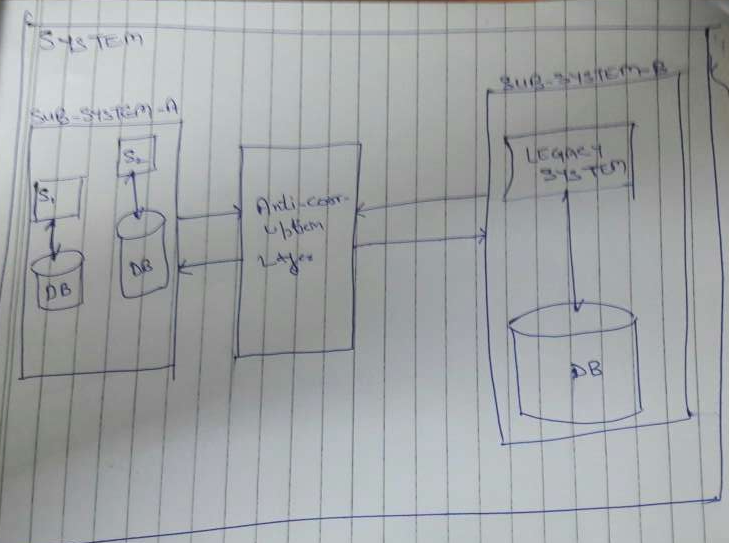 SYSTEM
SUB-SYSTEM-A
S₁
DB
S₂
DB
Anti-corr-
uption
Layer
SUB-SYSTEM-B
LEGACY
SYSTEM
DB